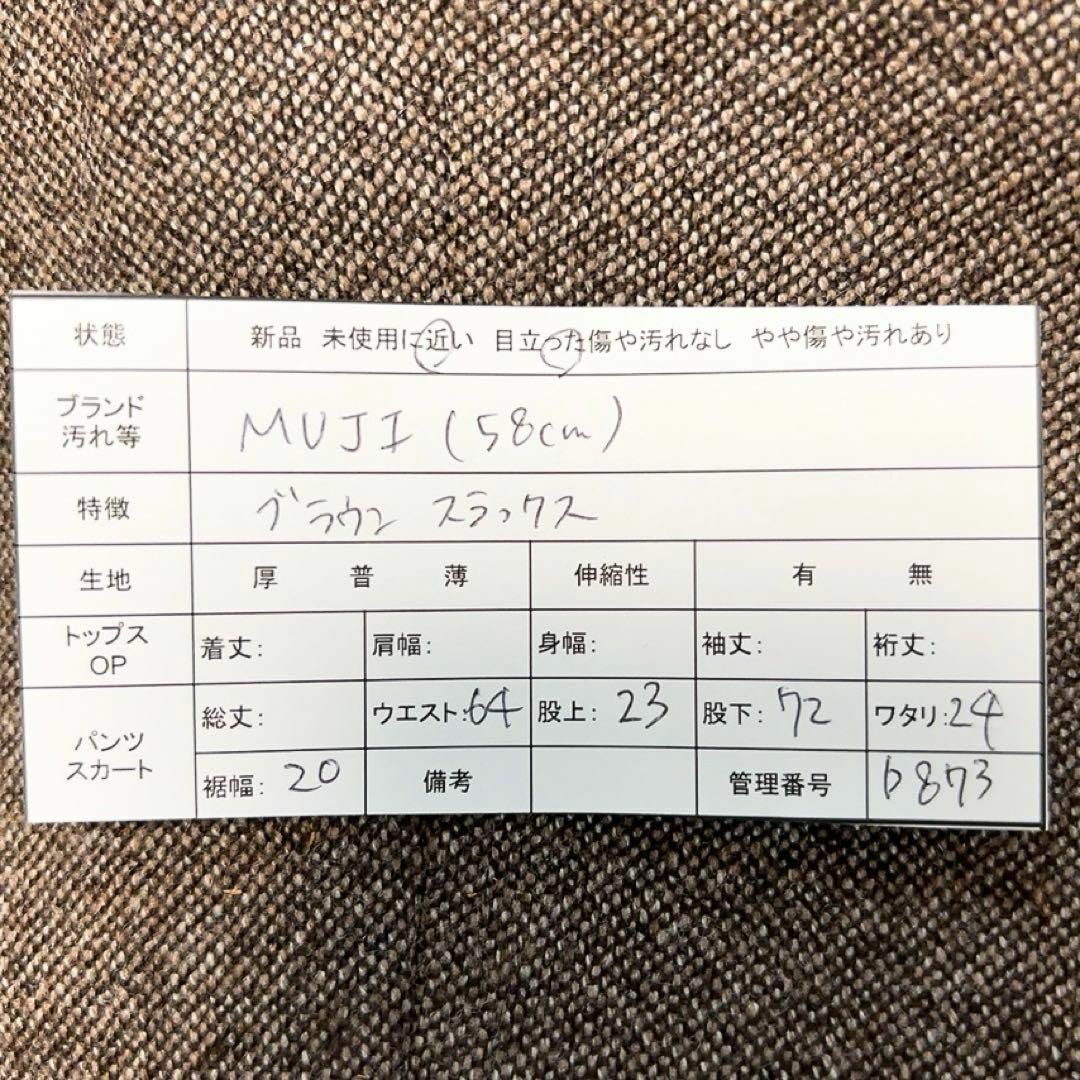 状態 新品 未使用に近い 目立った傷や汚れなし やや傷や汚れあり
ブランド
汚れ等 MUJI (58cm)
特徴 ブラウン スラックス
生地 厚 普 薄 伸縮性 有 無
トップス
OP 着丈: 肩幅: 身幅: 袖丈: 裄丈:
パンツ
スカート 総丈: ウエスト:64 股上: 23 股下: 72 ワタリ:24
裾幅: 20 備考 管理番号 b873